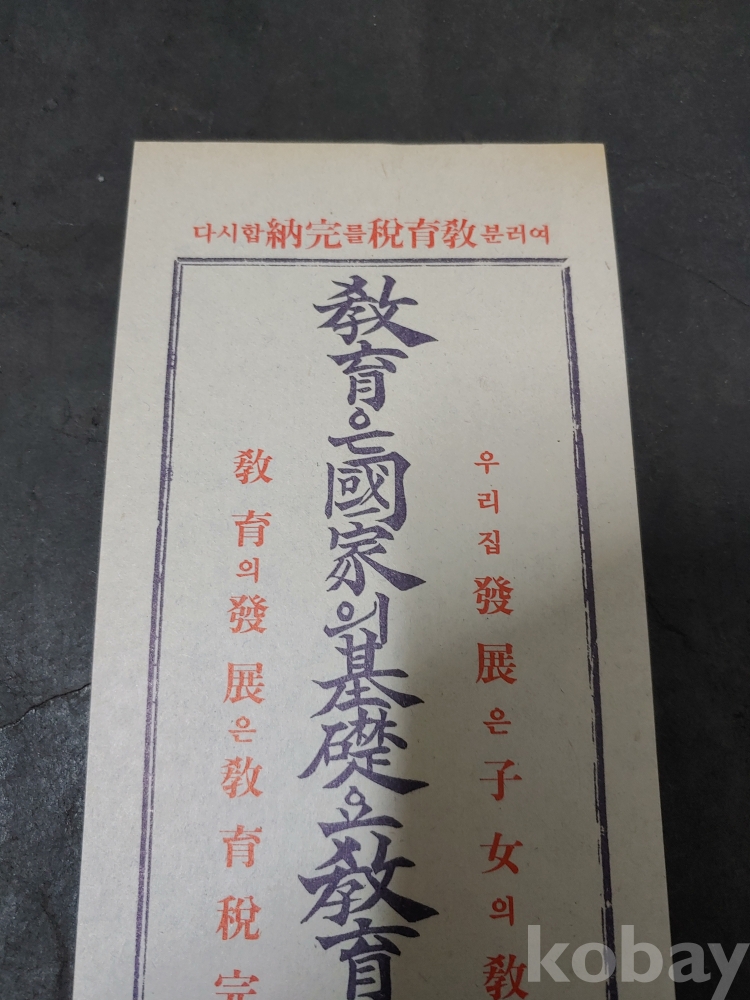 여러분 敎育稅를 完納합시다
우리집 發展은 子女의 敎
敎育은 國家의 基礎요 敎育
敎育의 發展은 敎育稅 完
kobay